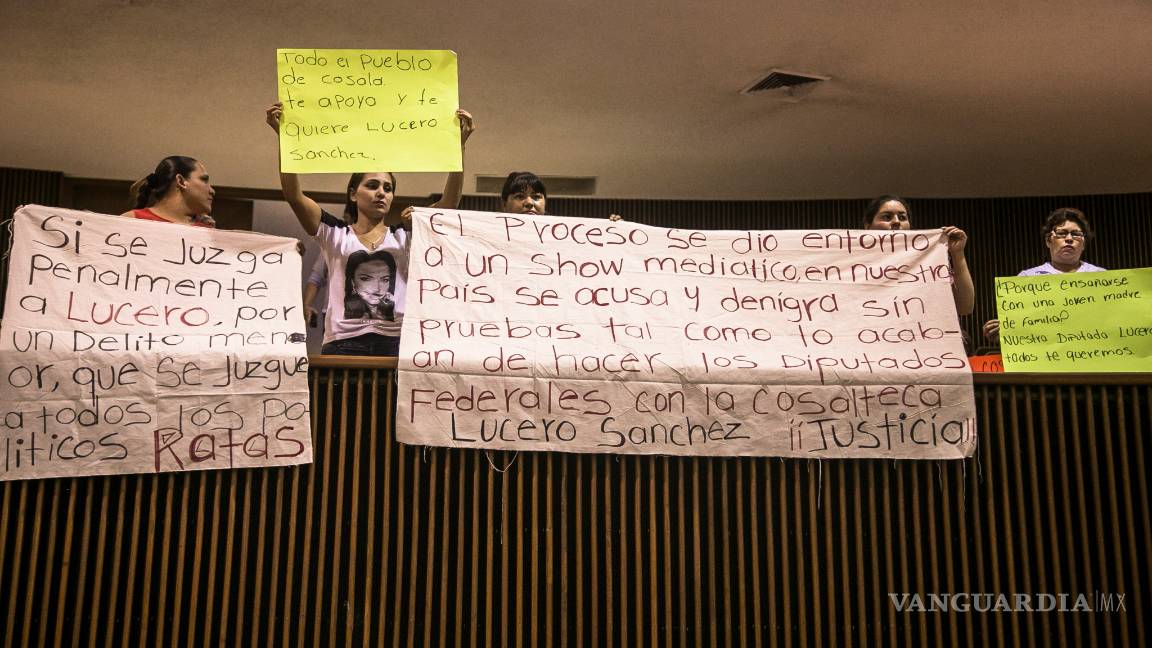 Todo el Pueblo
de cosala.
te apoya y te
quiere Lucero
Sanchez.
Si se Juzga
Penalmente
a Lucero, por
un Delito men
or, que se Juzgue
a todos los Po-
liticos Ratas
El Proceso se dio entorno
a un show mediatico, en nuestro
País se acusa y denigra sin
pruebas tal como lo acab-
an de hacer los Diputados
Federales con la cosalteca
Lucero Sanchez ¡¡Justicia!!
¿Porque ensañarse
con una joven madre
de familia?
Nuestra Diputada Lucero
todos te queremos.
VANGUARDIA|MX